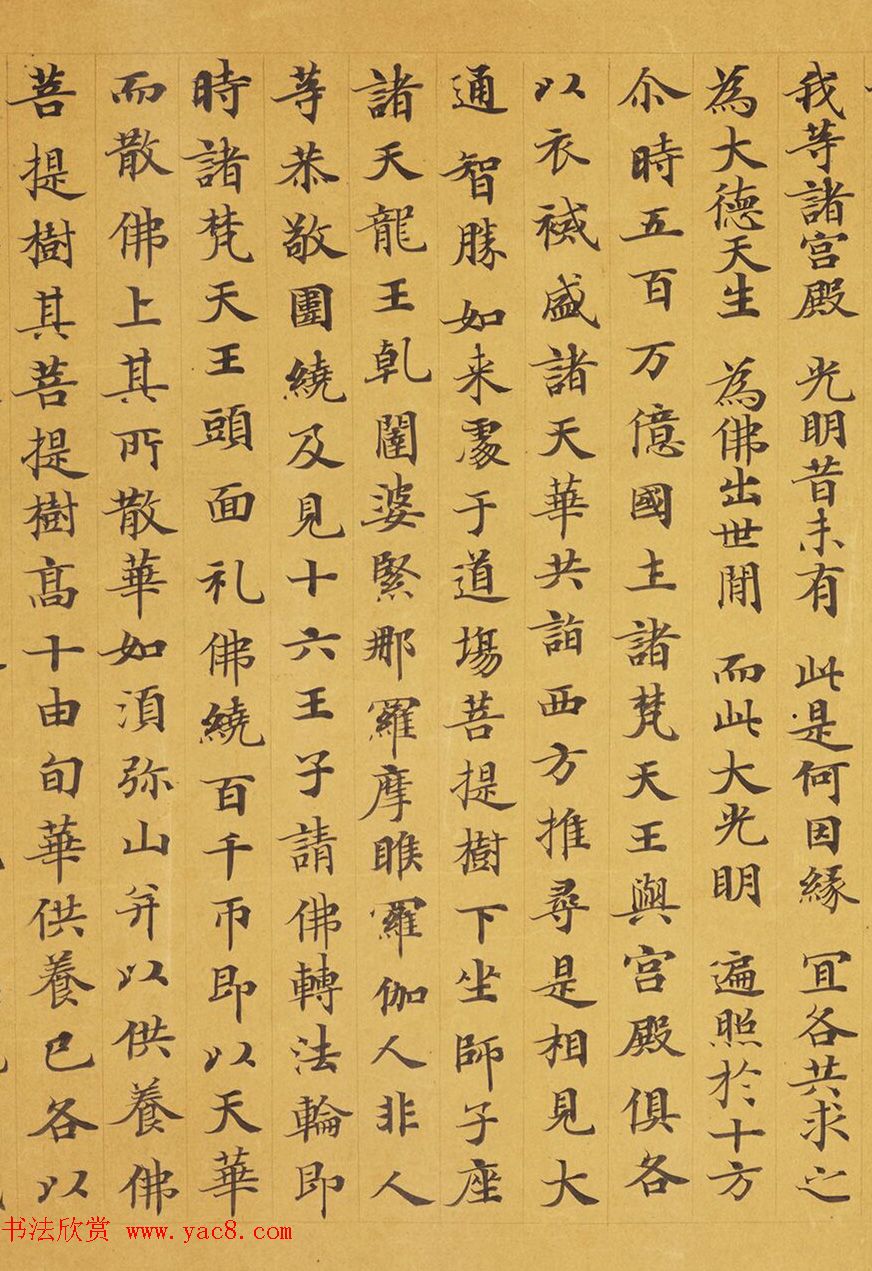 我等諸宮殿 光明昔未有 此是何因緣 冝各共求之
為大德天生 為佛出世間 而此大光明 遍照於十方
尒時五百万億國土諸梵天王與宮殿俱各
以衣裓盛諸天華共詣西方推尋是相見大
通智勝如来處于道場菩提樹下坐師子座
諸天龍王乹闥婆緊那羅摩睺羅伽人非人
等恭敬圍繞及見十六王子請佛轉法輪即
時諸梵天王頭面礼佛繞百千帀即以天華
而散佛上其所散華如湏弥山并以供養佛
菩提樹其菩提樹髙十由旬華供養已各以
书法欣赏 www.yac8.com